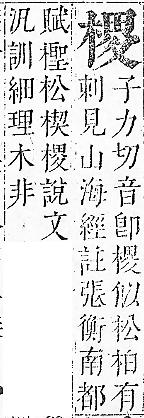 楥子力切音卽楥似松柏有
刺見山海經註張衡南都
賦檉松楔楥說文
汎訓細理木非